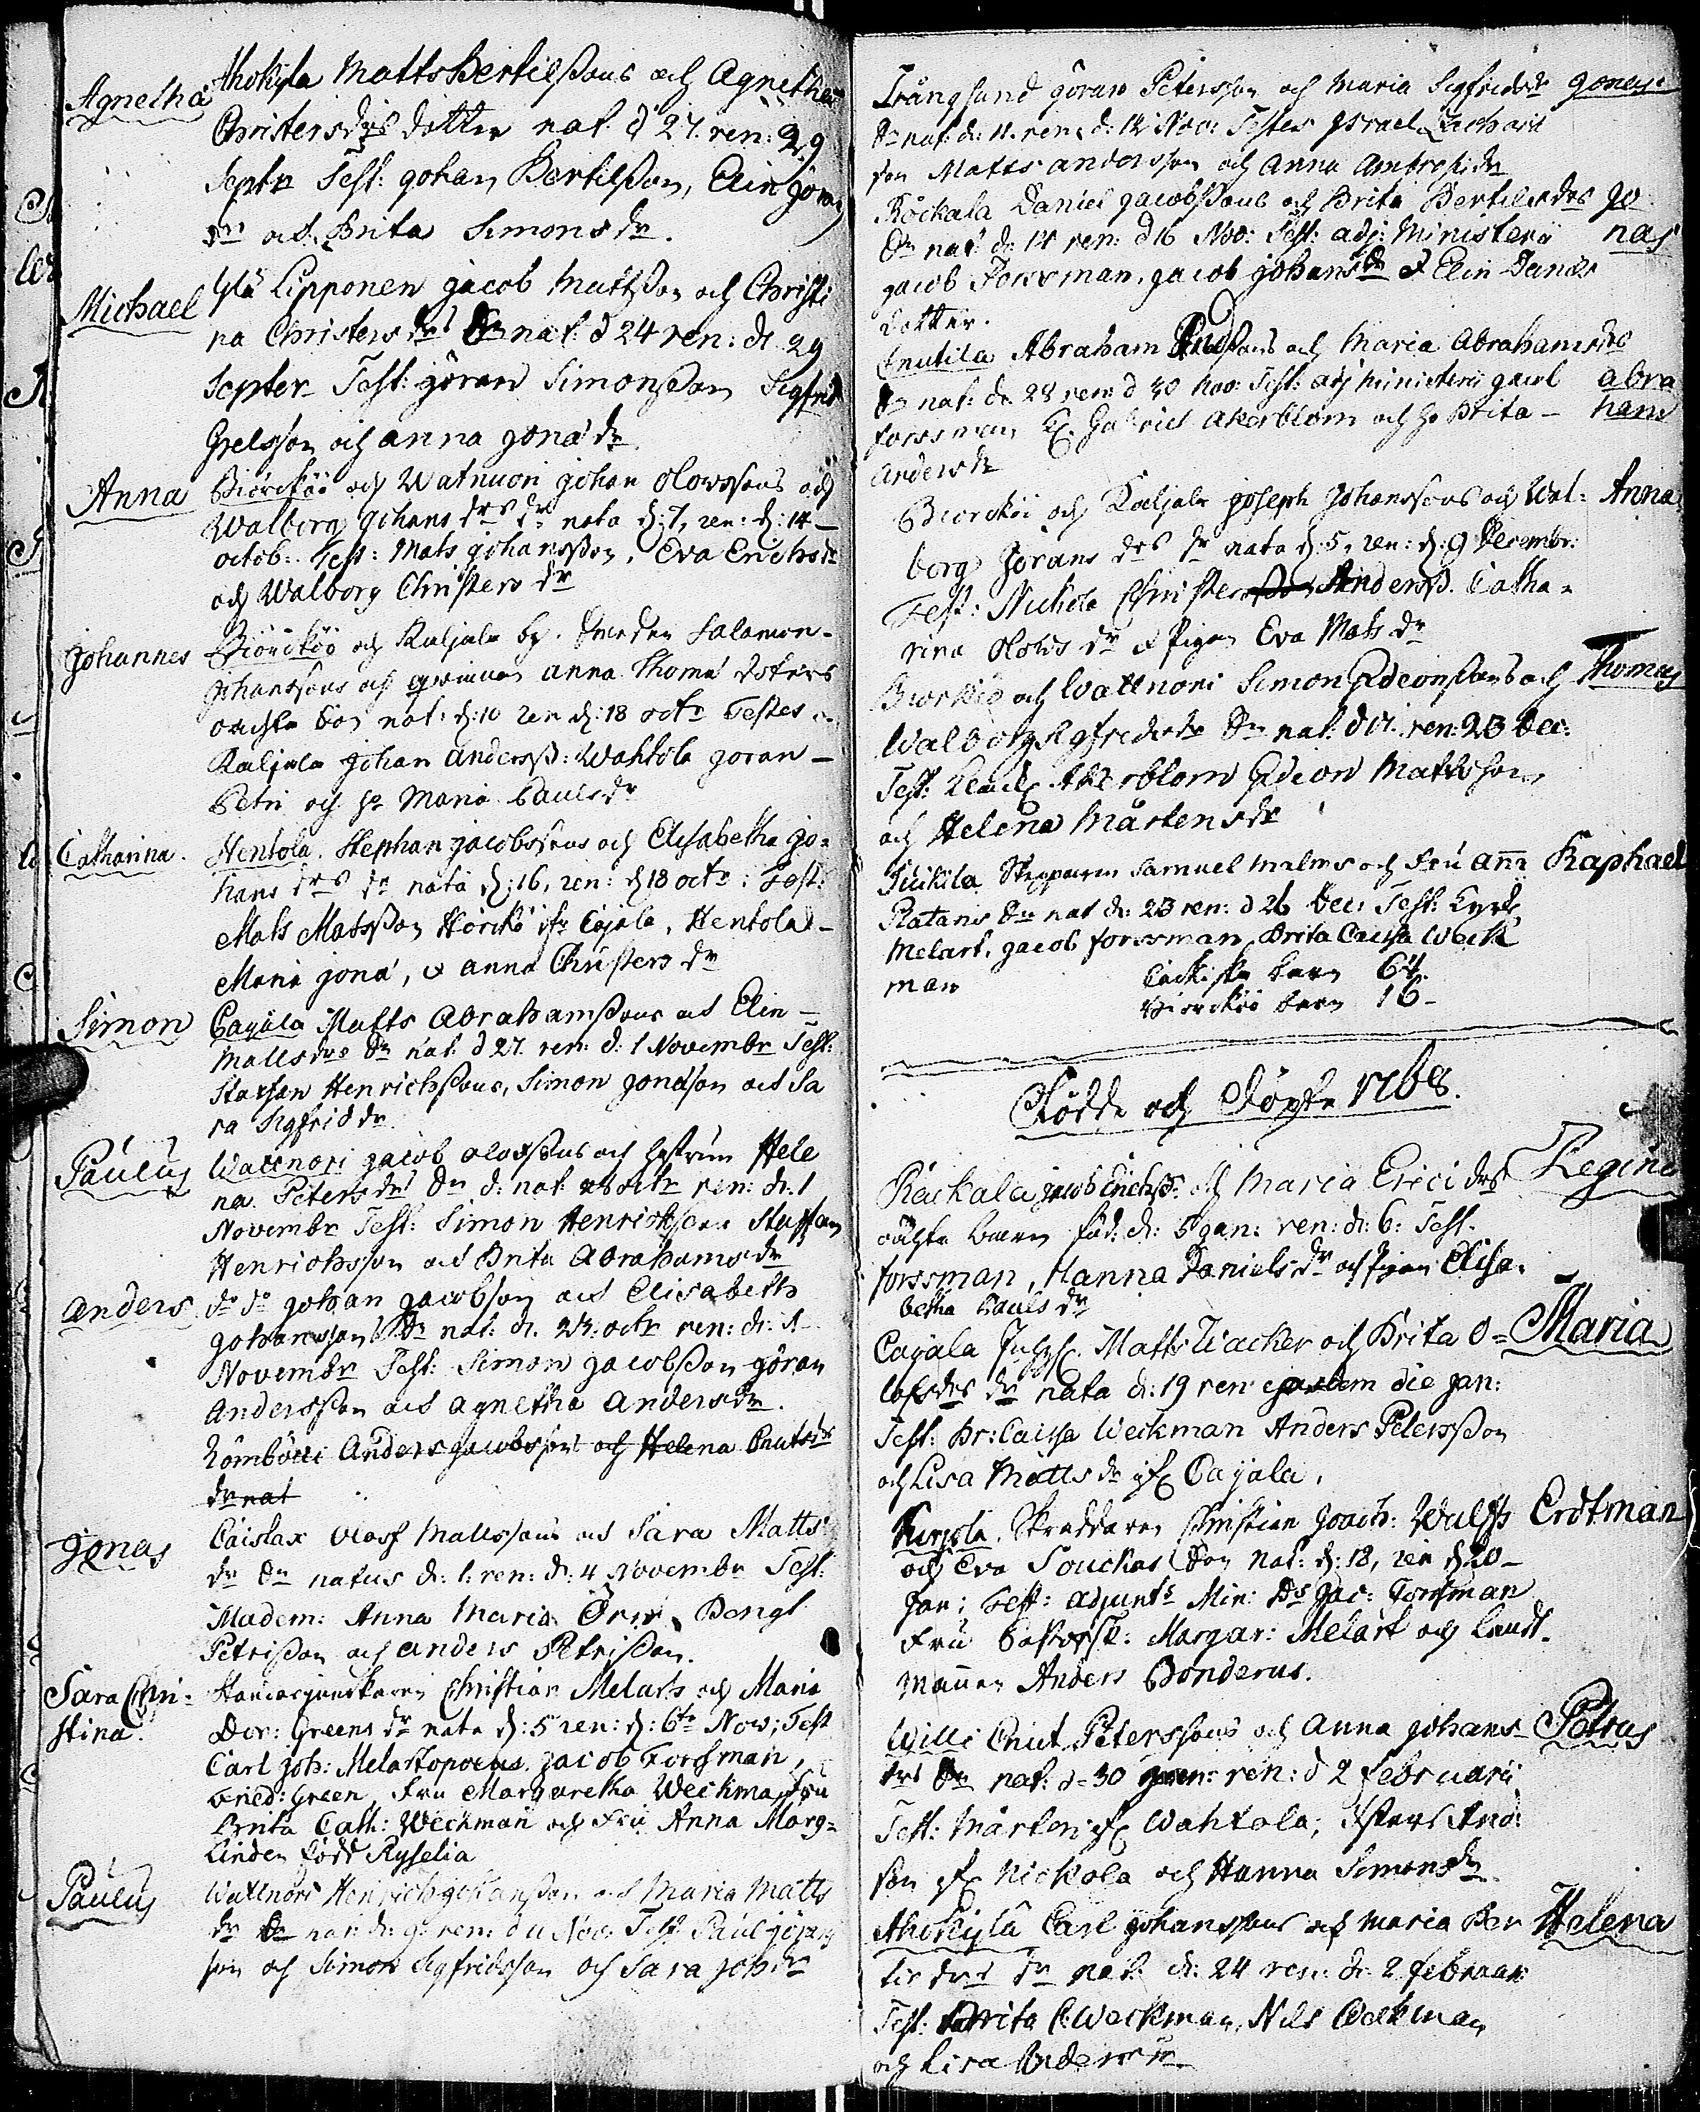 Agnetha
Ahokyla Matts Bertilssons och Agnetha
Christersdrs dotter nat. d 27. ren: 29
Septr Test: Johan Bertilsson, Elin Jöran
drs och Brita Simonsdr.
Michael
Ylä Lipponen Jacob Mattsson och Christi
na Christersdrs Sn nat. d 24 ren: d. 29
Septer Test: Göran Simonsson Sigfrid
Grelsson och Anna Jonædr
Anna
Biörcköö och Watnuori Johan Olowssons och
Walborg Johansdrs dr nata d: 7, ren: d: 14
octob: Test: Mats Johansson, Eva Erichsdr
och Walborg Christersdr
Johannes
Biörcköö och Kuljala by. Smeden Salamon
Johanssons och qwinnan Anna Thomæ doters
oächta son nat: d: 10 ren d: 18 octr Testes
Kuljala Johan Anderss: Wahtola Göran
Petri och Maria Paulsdr
Catharina.
Hentola. Stephan Jacobssons och Elisabetha Jo-
hans drs dr nata d: 16, ren: d 18 octr: Test:
Mats Matsson Cajala, Hentola
Maria Jonæ, & Anna Christersdr
Simon
Cajala Matts Abrahamssons och Elin
Mattsdrs Sn nat. d 27. ren: d. 1 Novembr Test:
Staffan Henrichssons, Simon Jonæson och Sa
ra Sigfriddr
Paulus
Wattnori Jacob Olofssons och hustrun Hele
na Petersdrs Sn d: nat. octr ren: d: 1
Novembr Test: Simon Henrichsson Staffan
Henrichsson och Brita Abrahamsdr
Anders
do do Johan Jacobson och Elisabeth
Johansson Sn nat: d. octr ren: d:
Novembr Test: Simon Jacobsson Göran
Andersson och Agnetha Andersdr.
Römbötti Anders Jacobsson och Helena Cnutsdr
dr nat
Jonas
Caislax Olof Mattssons och Sara Matts
dr Sn natus d: 1: ren: d: 4 Novembr Test:
Madem: Anna Maria Örn, Bengt
Petrisson och Anders Petrisson.
Sara Chri-
stina.
Christian Melarts och Maria
Dor: Greens dr nata d: 5 ren: d: 6te Nov; Test
Carl Joh: Melartopoeus, Jacob Forssman,
Fried: Green, Fru Margaretha Weckman Fru
Brita Cath: Weckman och Fru Anna Marg-
Linden född Ryselia
Paulus
Wattnori Henrich Johansson och Maria Matts
dr Sn nat d: 9: ren: d 11 Nov: Test Paul Jöran
son och Simon Sigfridsson och Sara Johdr
Trångsund Göran Petersson och Maria Sigfridsdr
Jonas
Sn nat: d: 11. ren: d: 14 Nov: Testes Israel Zachari
son Matts Andersson och Anna Ambrosidr
Röckala Daniel Jacobssons och Brita Bertilsdrs
Jo
nas
Sn nat d: 14 ren: d 16 Nov: Test: adj: Ministerii
Jacob Forssman, Jacob Johansdr & Elin Daniels
dotter.
Cnutila Abraham Paulssons och Maria Abrahamsdrs
Sn nat: d: 28 ren: d 30 Nov: Test: adj Ministerii Jacob
Abra
ham
Forssman, Gabriel Åkerblom och Brita
Andersdr
Biorcköi och Kuljala Joseph Johanssons och Wal-
Anna
borg Jörans drs dr nata d: 5, ren: d: 9 Decembr:
Test: Nichola Christerss Anderss. Catha-
rina Olowsdr & pigan Eva Matsdr
Biorköö och Wattnori Simon Gideonssons och
Thomas
Walborg Sigfridsdr Sn nat. d 21. ren: 23 Dec:
Test: Åkerblom Gideon Mattsson
och Helena Mårtensdr
Fuikila Skepparen Samuel Malms och Fru Anna
Raphael
Platans Sn nat d: 23 ren: d 26 Dec: Test:
Melart, Jacob Forssman, Brita Caisa Weck
man
Cackiska barn 64.
Biorcköö barn 16
Födde och Döpte 1768.
Räckala Jacob Erichss. och Maria Ericidrs
Regina
oächta barn föd: d: 5 Jan: ren: d: 6: Test.
Forssman, Hanna Danielsdr och pigan Elisa-
betha Paulsdr
Cajala Matts Wacker och Brita O-
Maria
lofsdrs dr nata d: 19 ren: eodem die Jan:
Test: Br: Caisa Weckman Anders Petersson
och Lisa Mattsdr Cajala.
Kurjola. Skräddaren Christian Joach: Wulffs
Erdtman
och Eva Souckas Son nat: d: 18, ren d 20
Jan: Test: adjunct: Min: Jac: Forssman
Fru Margar: Melart och Landt-
mannen Anders Bonderus.
Willi Cnut Peterssons och Anna Johans-
Petrus
drs Sn nat. d: 30 ren: d 2 Februarii
Test: Mårten Wahtola, And:
son Nickola och Hanna Simonsdr
Ahokylä Carl Johanssons och Maria Ber
Helena
tildrs dr nat. d: 24 ren: d: 2 Februar:
Test: Brita C: Weckman, Nils Weckman
och Lisa Andersdr